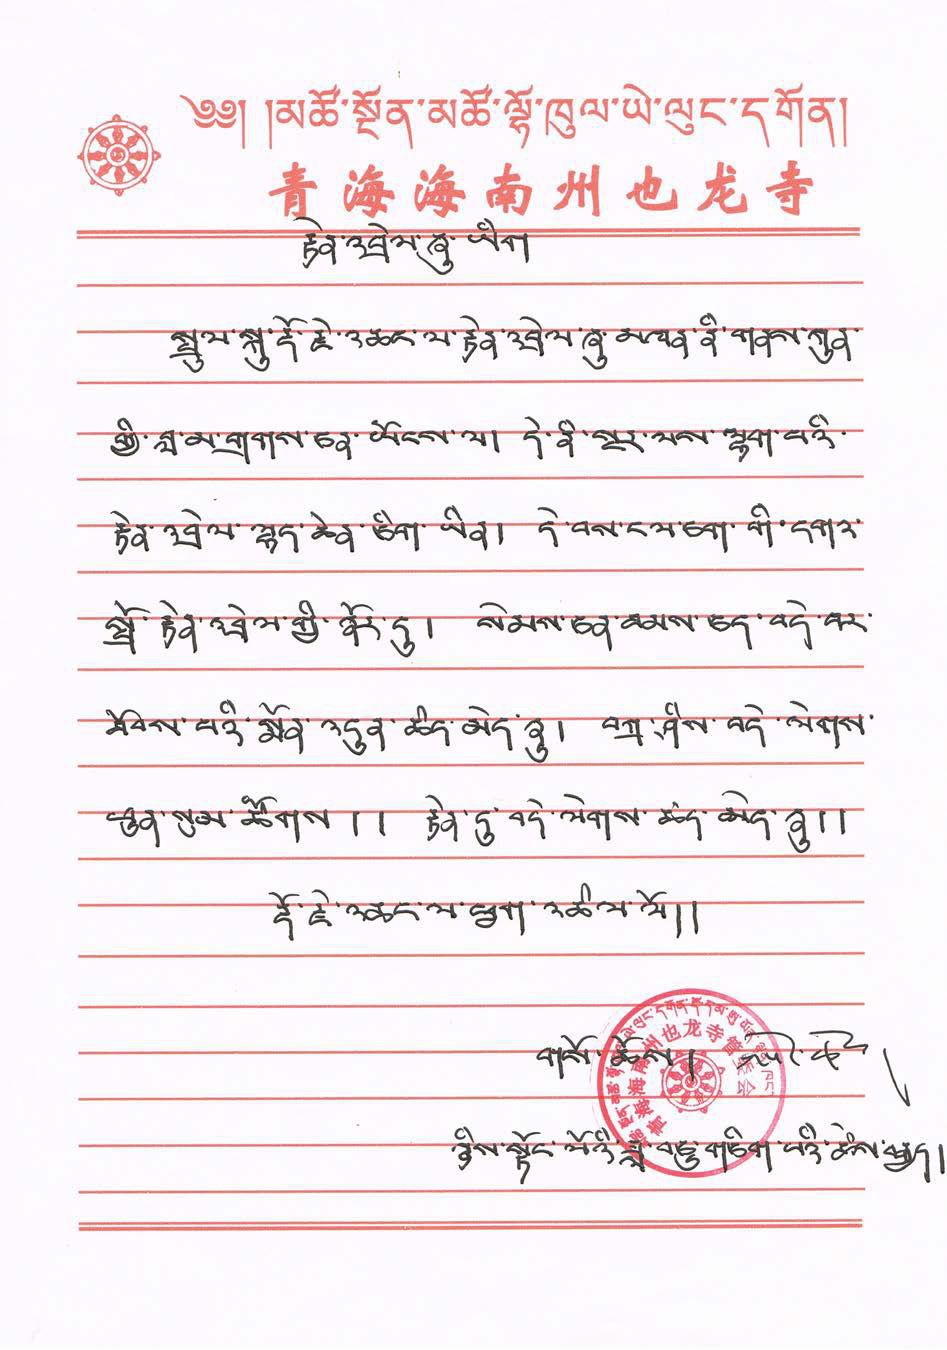 ༄༅། །མཚོ་སྔོན་མཚོ་ལྷོ་ཁུལ་ཡེ་ལུང་དགོན།
青海海南州也龙寺
རྟེན་འབྲེལ་ཞུ་ཡིག
སྤྲུལ་སྐུ་རྡོ་རྗེ་འཆང་ལ་རྟེན་འབྲེལ་ཞུ་མཁན་ནི་གནས་ཀུན་
གྱི་བླ་མ་གྲགས་ཅན་ཡོངས་ལ། དེ་ནི་སྔར་ལས་ལྷག་པའི་
རྟེན་འབྲེལ་ཁྱད་ཆེན་ཅིག་ཡིན། དེ་བས་ང་ལ་ཅག་གི་དགའ་
སྤྲོ་རྟེན་འབྲེལ་གྱི་ངོར་དུ། སེམས་ཅན་ཐམས་ཅད་བདེ་བར་
ཐོབས་པའི་སྨོན་འདུན་ཚད་མེད་ཞུ། བཀྲ་ཤིས་བདེ་ལེགས་
ཕུན་སུམ་ཚོགས།། རྟེན་དུ་བདེ་ལེགས་ཚད་མེད་ཞུ།།
རྡོ་རྗེ་འཆང་ལ་ཕྱག་འཚལ་ལོ།།
青海海南州也龙寺管委会
ཉིས་སྟོང་ལོའི་ཟླ་བཅུ་གཅིག་པའི་ཚེས་